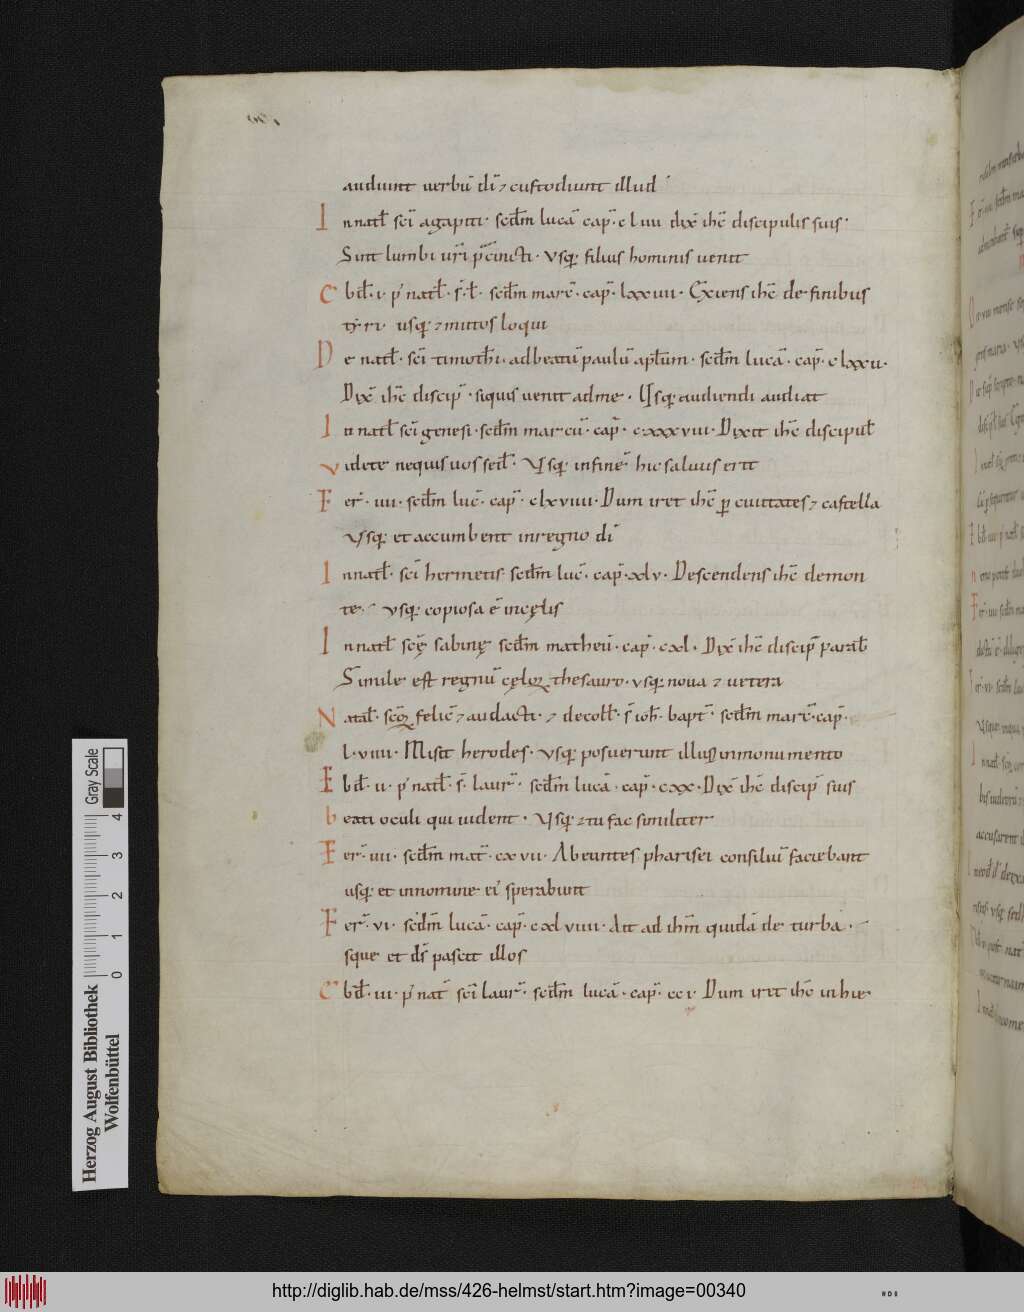 audiunt uerbū dī ⁊ custodiunt illud
In natał sc̄i agapiti · scđm lucā cap̄ · c l uii dix̄ ih̄c discipulis suis ·
Sint lumbi ur̄i p̄cincti · Vsq; filius hominis uenit
Ebđ · i · p̄ natał · s̄ · ł · scđm marc̄ · cap̄ · lxxiiii · Exiens ih̄c de finibus
tyri usq; ⁊ mutos loqui
De natał · sc̄i timothei · ad beatū paulū apłum · scđm lucā · cap̄ · clxxu ·
Dix̄ ih̄c discip̄ · siquis uenit ad me · Usq; audiendi audiat
In natał sc̄i genesi · scđm marcū · cap̄ · cxxxuiii · Dixit ih̄c discipuł
Videte nequis uos seđ · Vsq; in finē hic saluus erit
Fer̄ · iiii · scđm luc̄ · cap̄ · clxuiiii · Dum iret ih̄c p ciuitates ⁊ castella
Vsq; et accumbent in regno dī
In natał · sc̄i hermetis · scđm luc̄ · cap̄ · xlv · Descendens ih̄c de mon
te · usq; copiosa ē in cęlis
In natał scę̄ sabinę scđm matheū · cap̄ · cxl · Dix̄ ih̄c discip̄ parab̄
Simile est regnū cęloꝝ thesauro · usq; noua ⁊ uetera
Natał · sc̄oꝝ felic̄ ⁊ audacti · ⁊ decołł · s̄ ioh̄ · bapt̄ · scđm marc̄ · cap̄ ·
l · uiiii · Misit herodes · usq; posuerunt illud in monumento
Ebđ · ii · p̄ natał · s̄ · laur̄ · scđm lucā · cap̄ · cxx · Dix̄ ih̄c discip̄ suis
beati oculi qui uident · Vsq; ⁊ tu fac similiter
Fer̄ · iiii · scđm mat̄ · cxuii · Abeuntes pharisei consiliū faciebant
usq; et in nomine ei' sperabunt
Fer̄ · ui · scđm lucā · cap̄ · cxluiiii · Ait ad ih̄m quidā de turba ·
sque et ds̄ pascit illos
Ebđ · iii · p̄ nat̄ sc̄i laur̄ · scđm lucā · cap̄ · cci · Dum iret ih̄c in hie
Gray Scale
0 1 2 3 4
Herzog August Bibliothek
Wolfenbüttel
http://diglib.hab.de/mss/426-helmst/start.htm?image=00340